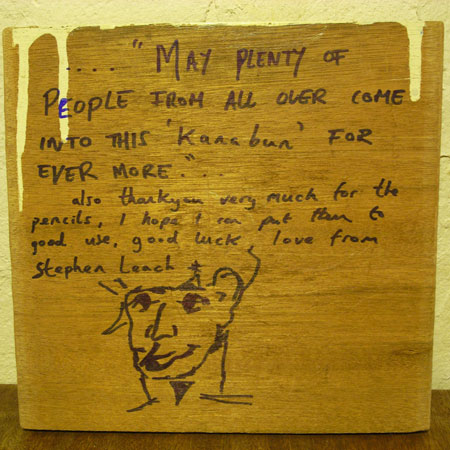 ...."MAY PLENTY OF
PEOPLE FROM ALL OVER COME
INTO THIS 'Kanabun' FOR
EVER MORE."..
also thankyou very much for the
pencils, I hope I can put them to
good use, good luck, love from
Stephen Leach